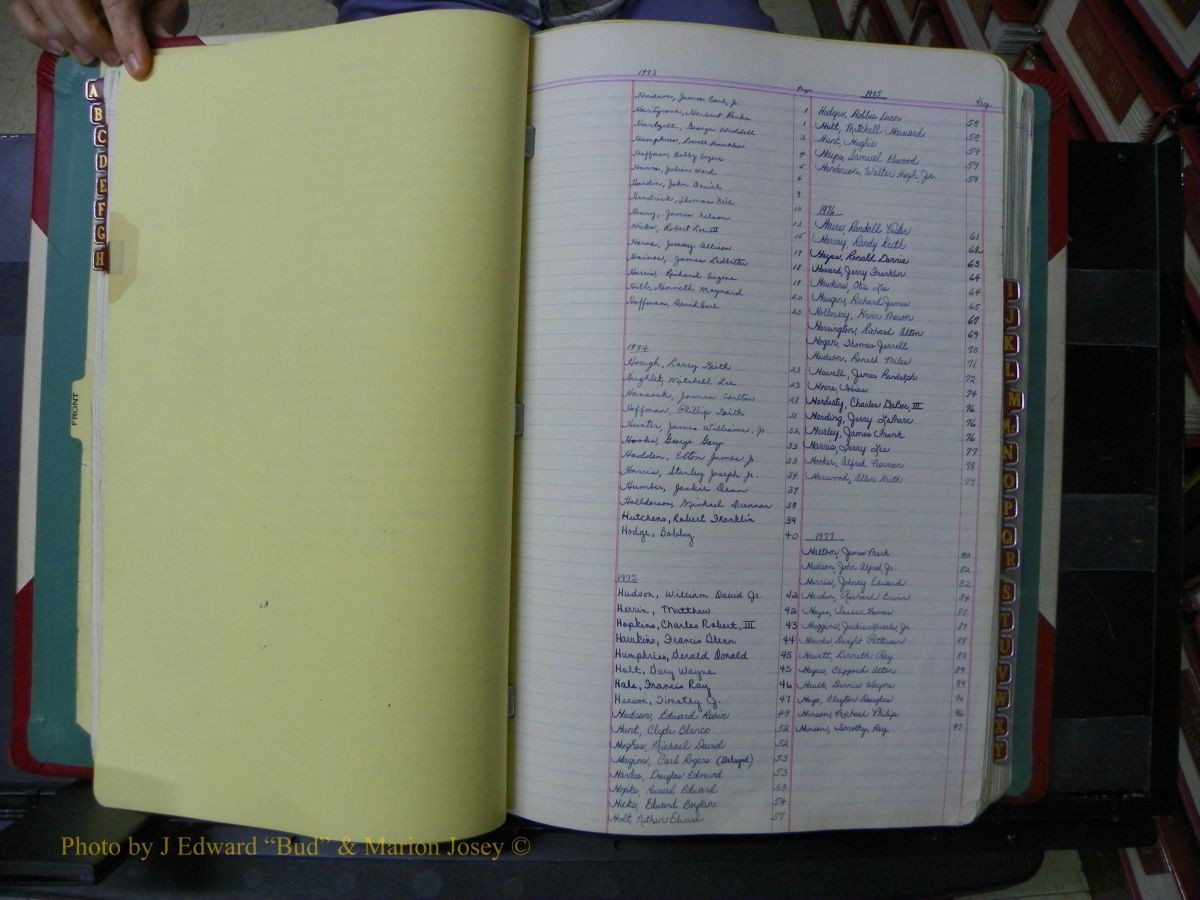 A
B
C
D
E
F
G
H
FRONT
1973
Page
Hudson, James Carl, Jr. 1
Hartgrove, Herbert Parks 1
Hartzell, George Waddell 3
Humphries, Lowell Franklin 4
Hoffman, Bobby Eugene 5
Hawes, Julian Ward 6
Hardin, John Daniel 9
Hendrick, Thomas Neil 10
Henry, James Nelson 13
Hicks, Robert Lee III 15
Horne, Jimmy Allison 17
Haines, James Ledbetter 18
Harris, Richard Eugene 19
Hill, Kenneth Maynard 20
Hoffman, David Earl 20
1974
Hough, Larry Keith 23
Hughlet, Mitchell Lee 23
Hancock, James Carlton 28
Hoffman, Phillip Keith 31
Hunter, James Williams, Jr. 32
Hooks, George Gary 33
Hadden, Elton James Jr. 33
Harris, Stanley Joseph Jr. 34
Humber, Jackie Dean 37
Halldorson, Michael Drennan 38
Hutchens, Robert Franklin 39
Hodge, Bobby 40
1975
Hudson, William David Jr. 42
Herrin, Matthew 42
Hopkins, Charles Robert, III 43
Hawkins, Francis Glenn 44
Humphries, Gerald Donald 45
Holt, Gary Wayne 45
Hale, Francis Ray 46
Henson, Timothy J. 47
Hudson, Edward Robin 49
Hunt, Clyde Blanco 52
Hughes, Michael David 52
Hagins, Carl Rogers (Delayed) 53
Hardee, Douglas Edmund 53
Hopke, Russel Edward 53
Hicks, Edward Boykin 54
Holt, Nathan Edward 57
1975
Pag
Hodges, Robbie Dean 58
Holt, Mitchell Harvard 58
Hunt, Hughie 59
Hays, Samuel Elwood 59
Henderson, Walter Hugh, Jr. 59
1976
Haire, Randall Victor 61
Harvey, Randy Keith 62
Hayes, Ronald Dannie 63
Howard, Jerry Franklin 64
Hawkins, Otis Lee 64
Haugen, Richard James 65
Holloway, Kevin Mason 67
Harrington, Richard Alton 69
Hogan, Thomas Jerrell 70
Hudson, Ronald Miles 71
Howell, James Randolph 72
Horne, Tobias 74
Hardesty, Charles DeBoe, III 76
Harding, Jerry LaMarr 76
Hurley, James Frank 76
Harris, Jerry Lee 77
Hooker, Alfred Norman 78
Harwood, Allen Keith 77
1977
Haltom, James Mark 80
Hudson, John Alfred, Jr. 82
Harris, Johnny Edward 82
Harden, Richard Erwin 84
Hayes, Isaac Thomas 85
Huggins, Jackie Lavaler, Jr. 87
Hawks, Dwight Patterson 88
Hewitt, Kenneth Ray 88
Hayes, Clifford Alton 89
Hault, Dennis Wayne 89
Hage, Clayton Douglas 90
Hinson, Michael Philip 96
Hinson, Timothy Ray 97
I
J
K
L
M
M
N
O
P
Q
R
S
T
U
V
W
X
Y
581
Photo by J Edward “Bud” & Marion Josey ©